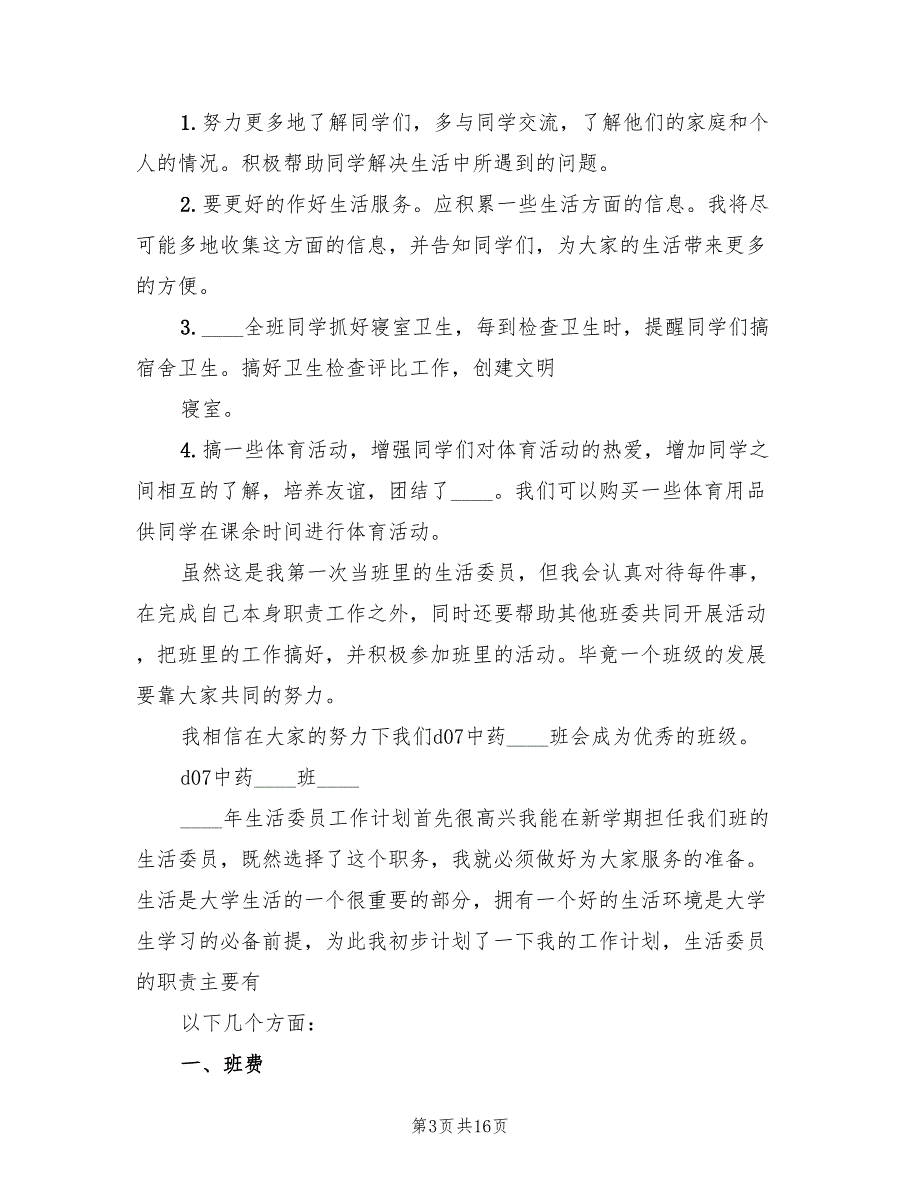 1.努力更多地了解同学们，多与同学交流，了解他们的家庭和个
人的情况。积极帮助同学解决生活中所遇到的问题。
2.要更好的作好生活服务。应积累一些生活方面的信息。我将尽
可能多地收集这方面的信息，并告知同学们，为大家的生活带来更多
的方便。
3.____全班同学抓好寝室卫生，每到检查卫生时，提醒同学们搞
宿舍卫生。搞好卫生检查评比工作，创建文明
寝室。
4.搞一些体育活动，增强同学们对体育活动的热爱，增加同学之
间相互的了解，培养友谊，团结了____。我们可以购买一些体育用品
供同学在课余时间进行体育活动。
虽然这是我第一次当班里的生活委员，但我会认真对待每件事，
在完成自己本身职责工作之外，同时还要帮助其他班委共同开展活动
，把班里的工作搞好，并积极参加班里的活动。毕竟一个班级的发展
要靠大家共同的努力。
我相信在大家的努力下我们d07中药____班会成为优秀的班级。
d07中药____班____
____年生活委员工作计划首先很高兴我能在新学期担任我们班的
生活委员，既然选择了这个职务，我就必须做好为大家服务的准备。
生活是大学生活的一个很重要的部分，拥有一个好的生活环境是大学
生学习的必备前提，为此我初步计划了一下我的工作计划，生活委员
的职责主要有
以下几个方面：
一、班费
第3页共16页